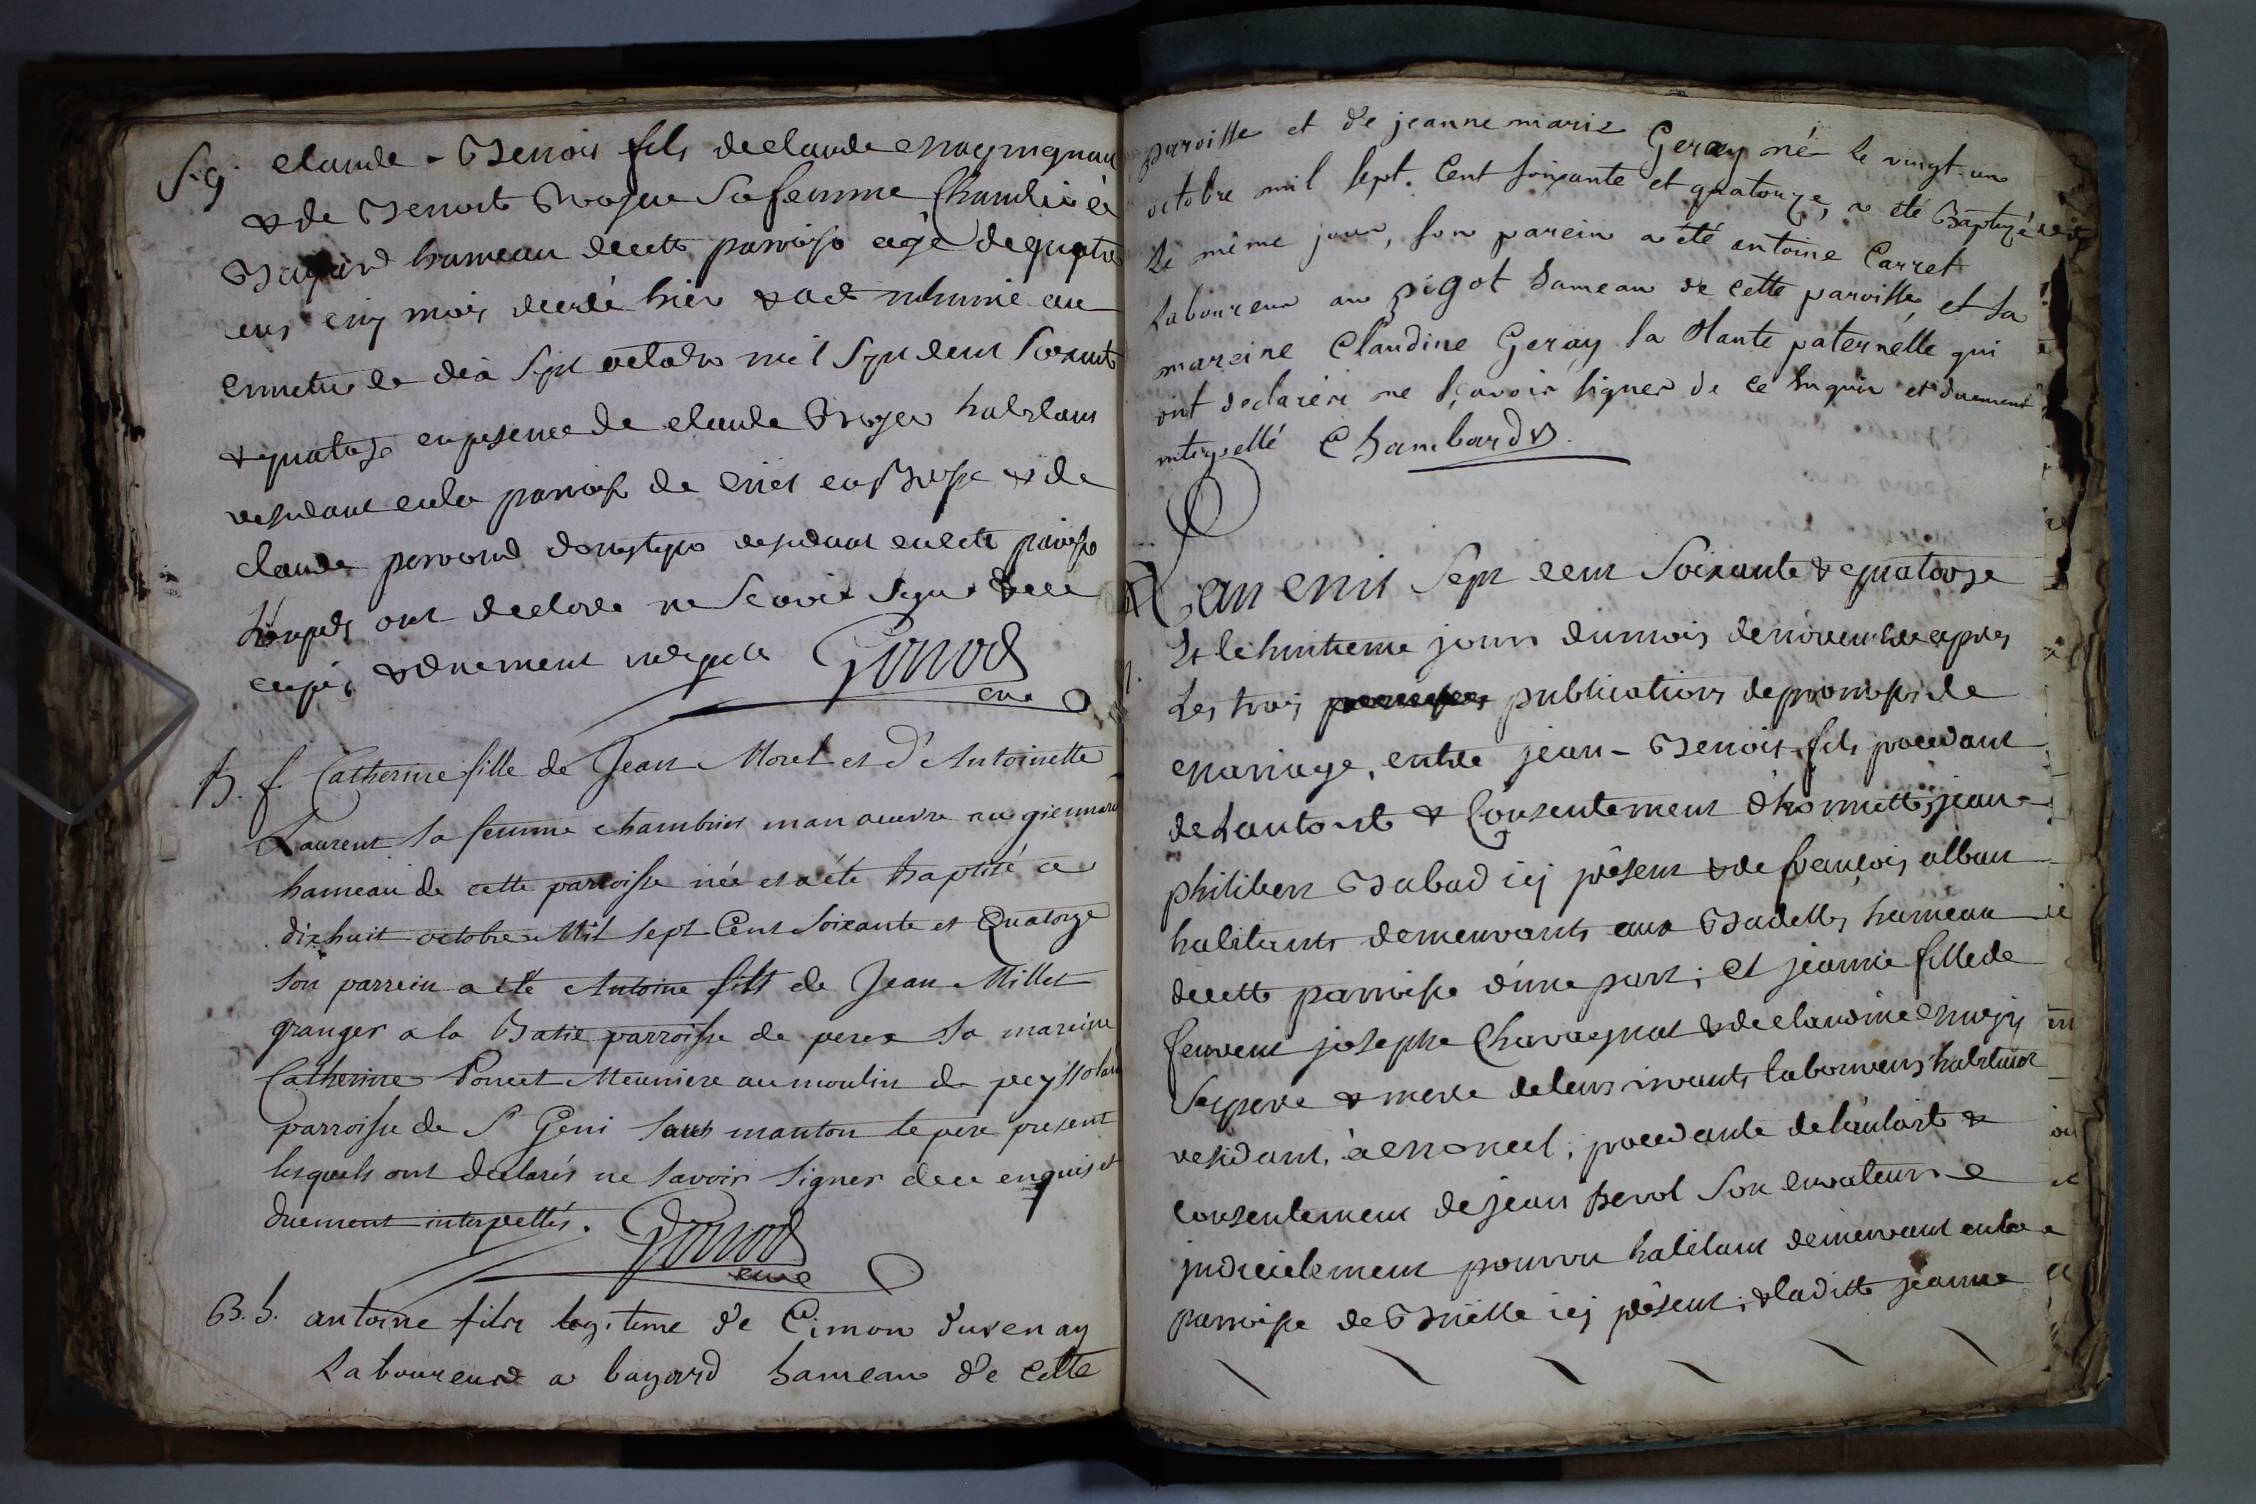 S.g. claude - Benois fils de claude
& de Benoit sa femme
Bayard hameau de cette paroisse agé de quatre
ans cinq mois decedé hier & a eté inhumé au
cimetiere le dix sept octobre mil sept cent soixante
& quatorze en presence de claude habitant
residant en la paroisse de en Bresse & de
claude domestique residant en cette paroisse
lesquels ont declaré ne scavoir signer de ce
enquis & duement interpelés Gonod
curé
B. f. Catherine fille de Jean Morel et d'Antoinette
Laurent sa femme manœuvre au
hameau de cette parroisse née et a été baptisé ce
dixhuit octobre Mil sept Cent Soixante et Quatorze
son parrein a eté Antoine fils de Jean Millet
granger a la Batie parroisse de perex sa mareine
Catherine Poncet Meuniere au moulin de
parroisse de St Geni sur manton le pere present
lesquels ont declarés ne savoir signer de ce enquis et
duement interpellés. Gonod
curé
B. s. antoine fils legitime de Cimon duvenay
Laboureur a bayard hameau de cette
paroisse et de jeanne marie Geray né le vingt-un
octobre mil sept. Cent soixante et quatorze, a été Baptizé
le même jour, son parein a été antoine Carret
Laboureur au pigot hameau de cette paroisse, et sa
mareine Claudine Geray sa tante paternelle qui
ont declarére ne sçavoir signer de ce enquis et duement
interpellé Chambard
L'an mil sept cent soixante & quatorze
Et le huitieme jour du mois de novembre apres
Les trois publications de promesses de
mariage, entre jean - Benoit fils procedant
de l'autorité & Consentement d'honnette jean
philibert Babad icy présent & de françois alban
habitants demeurants aux Badelles hameau
de cette paroisse d'une part; et jeanne fille de
feurent josephe Chavagnat & de claudine
ses pere & mere de leurs vivants laboureurs habitants
residant, à, procedante de l'autorité &
consentement de jean son curateur
judicielement pourvu habitant demeurant en la
paroisse de icy présent; & ladite jeanne